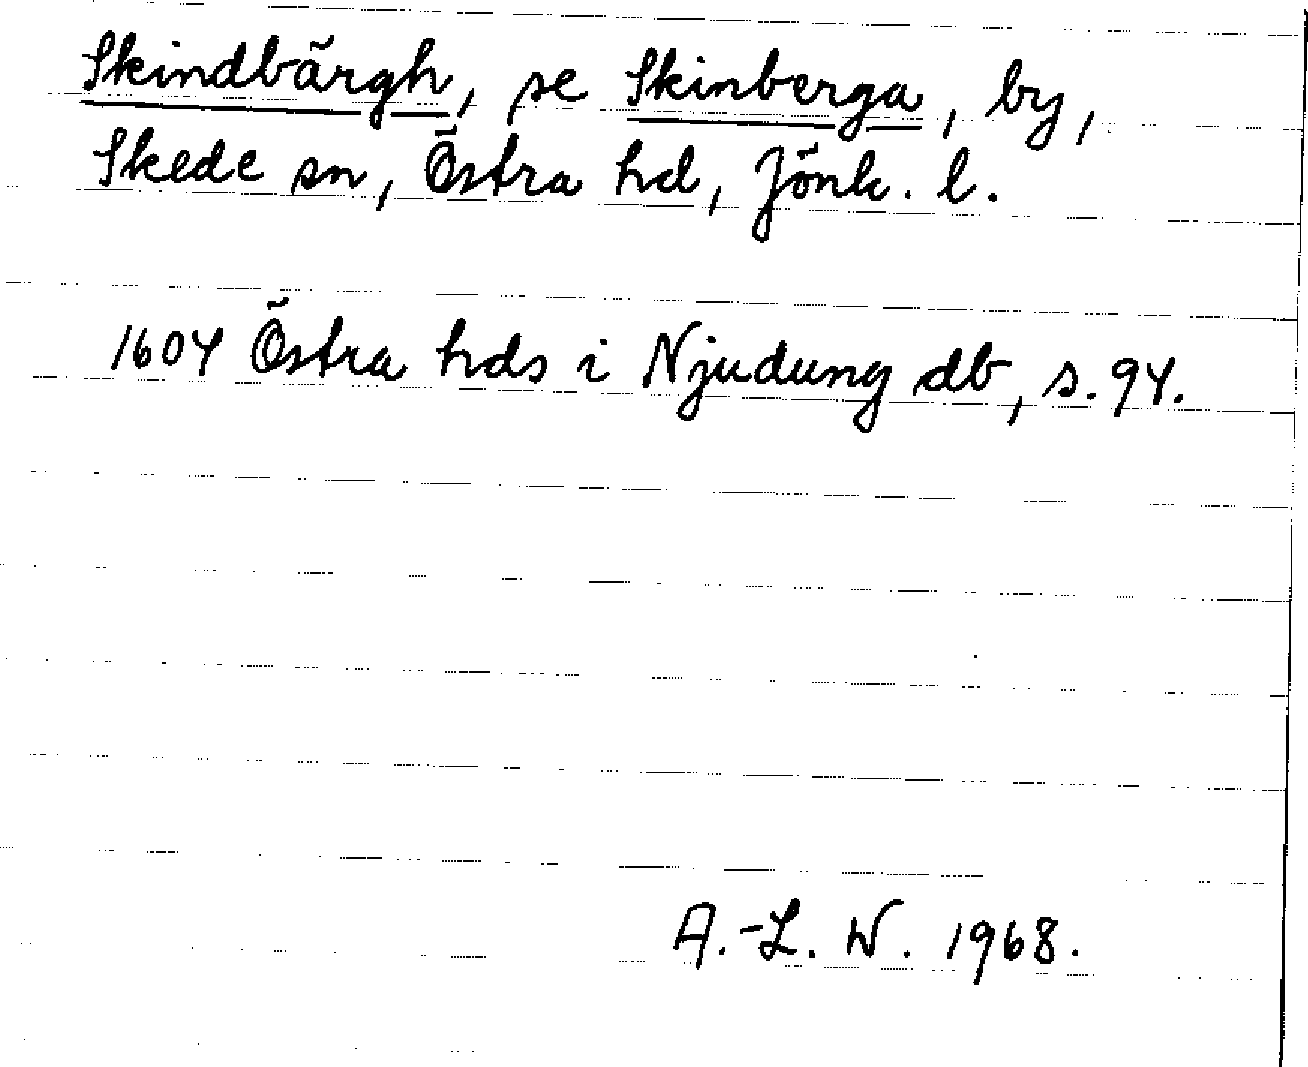 Skindbärgh, se Skinberga, by,
Skede sn, Östra hd, Jönk. l.
1604 Östra hds i Njudung db, s. 94.
A.-L. W. 1968.